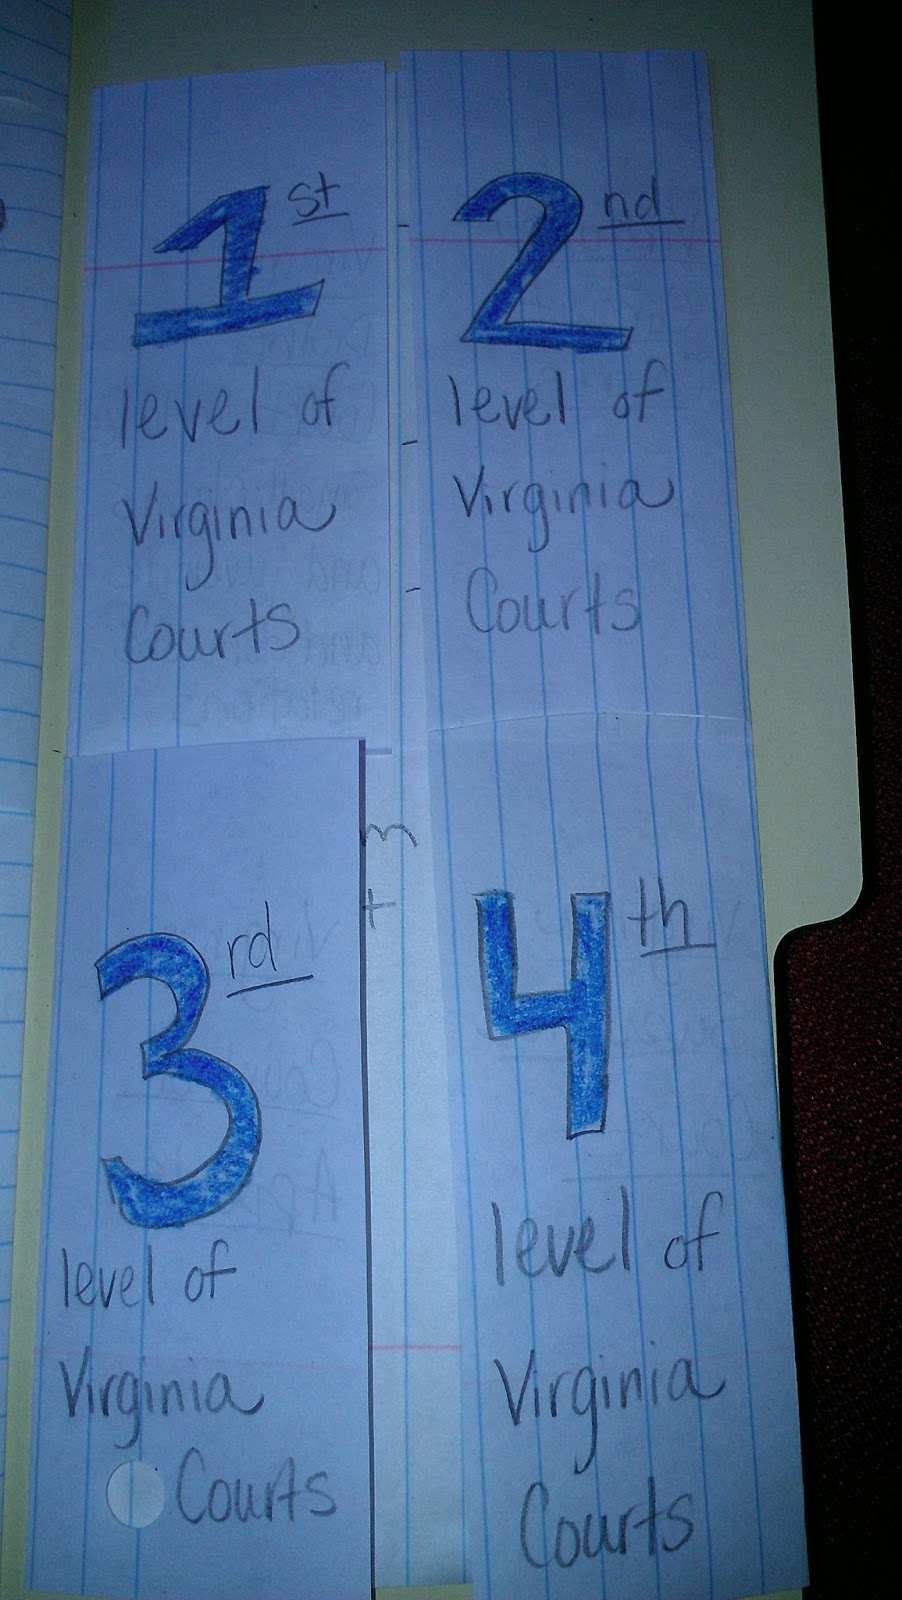 1st
level of
Virginia
Courts
2nd
level of
Virginia
Courts
3rd
level of
Virginia
Courts
4th
level of
Virginia
Courts